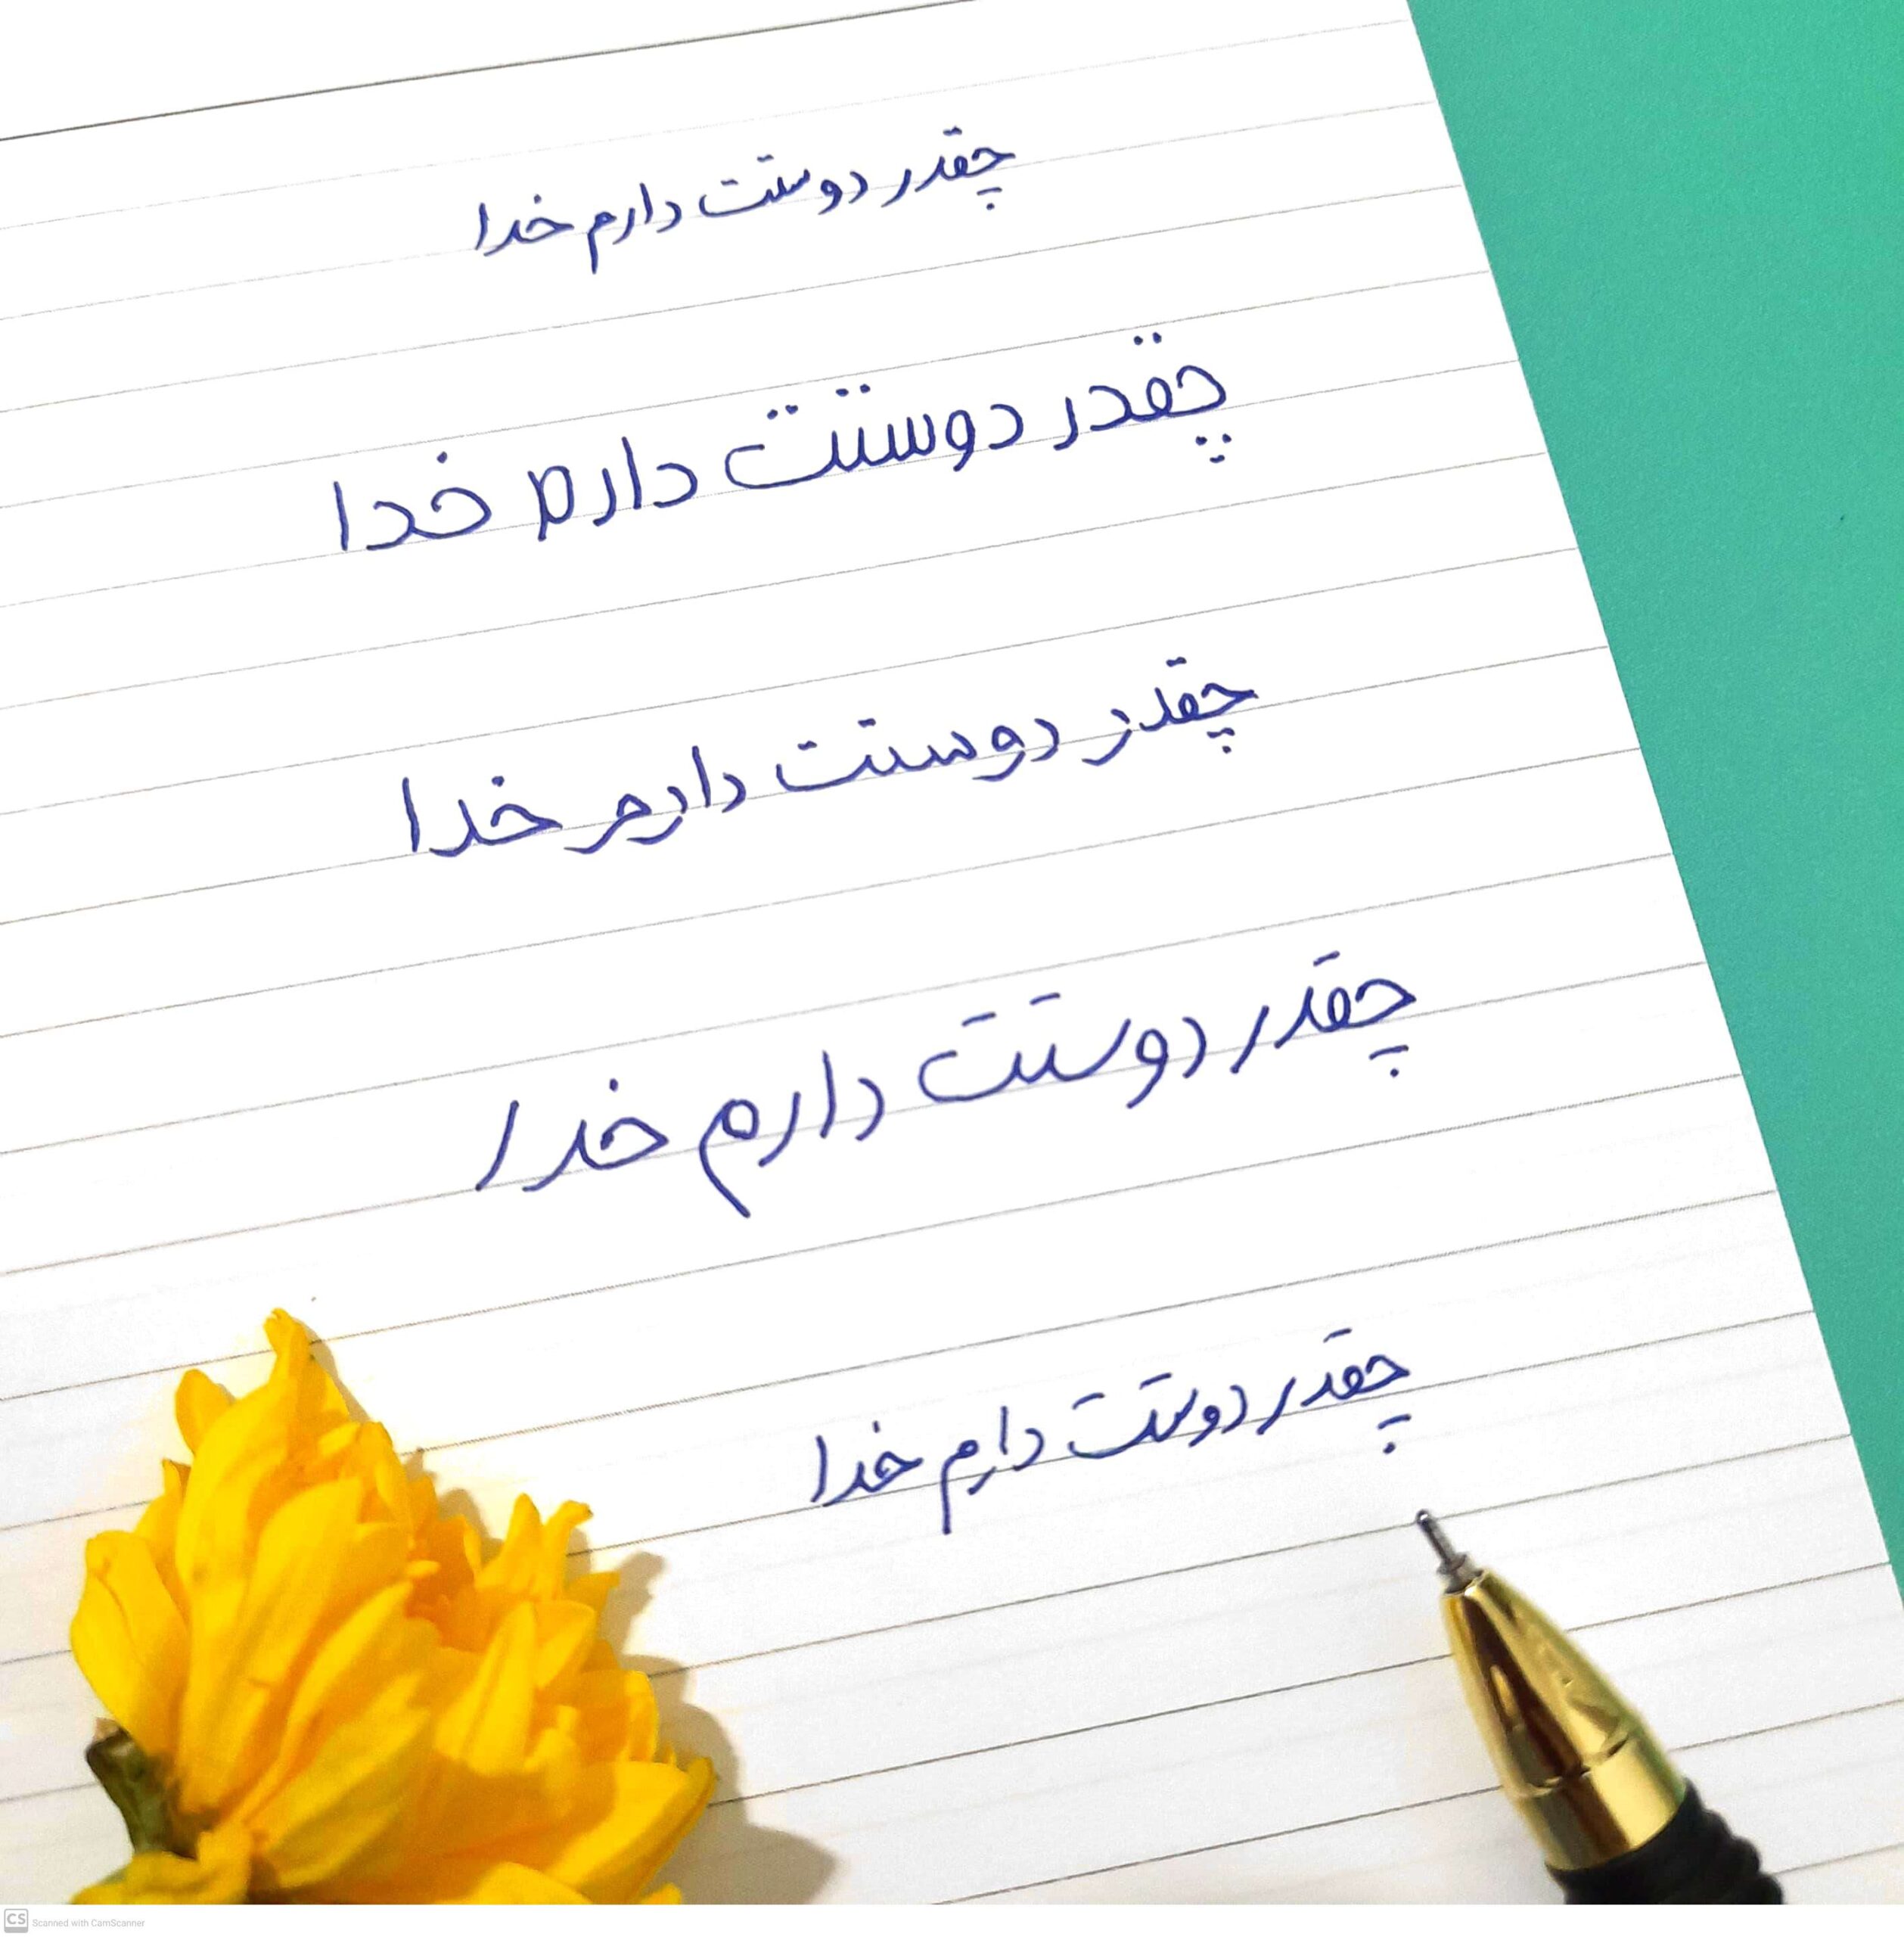 چقدر دوستت دارم خدا
چقدر دوستت دارم خدا
چقدر دوستت دارم خدا
چقدر دوستت دارم خدا
چقدر دوستت دارم خدا
CS Scanned with CamScanner